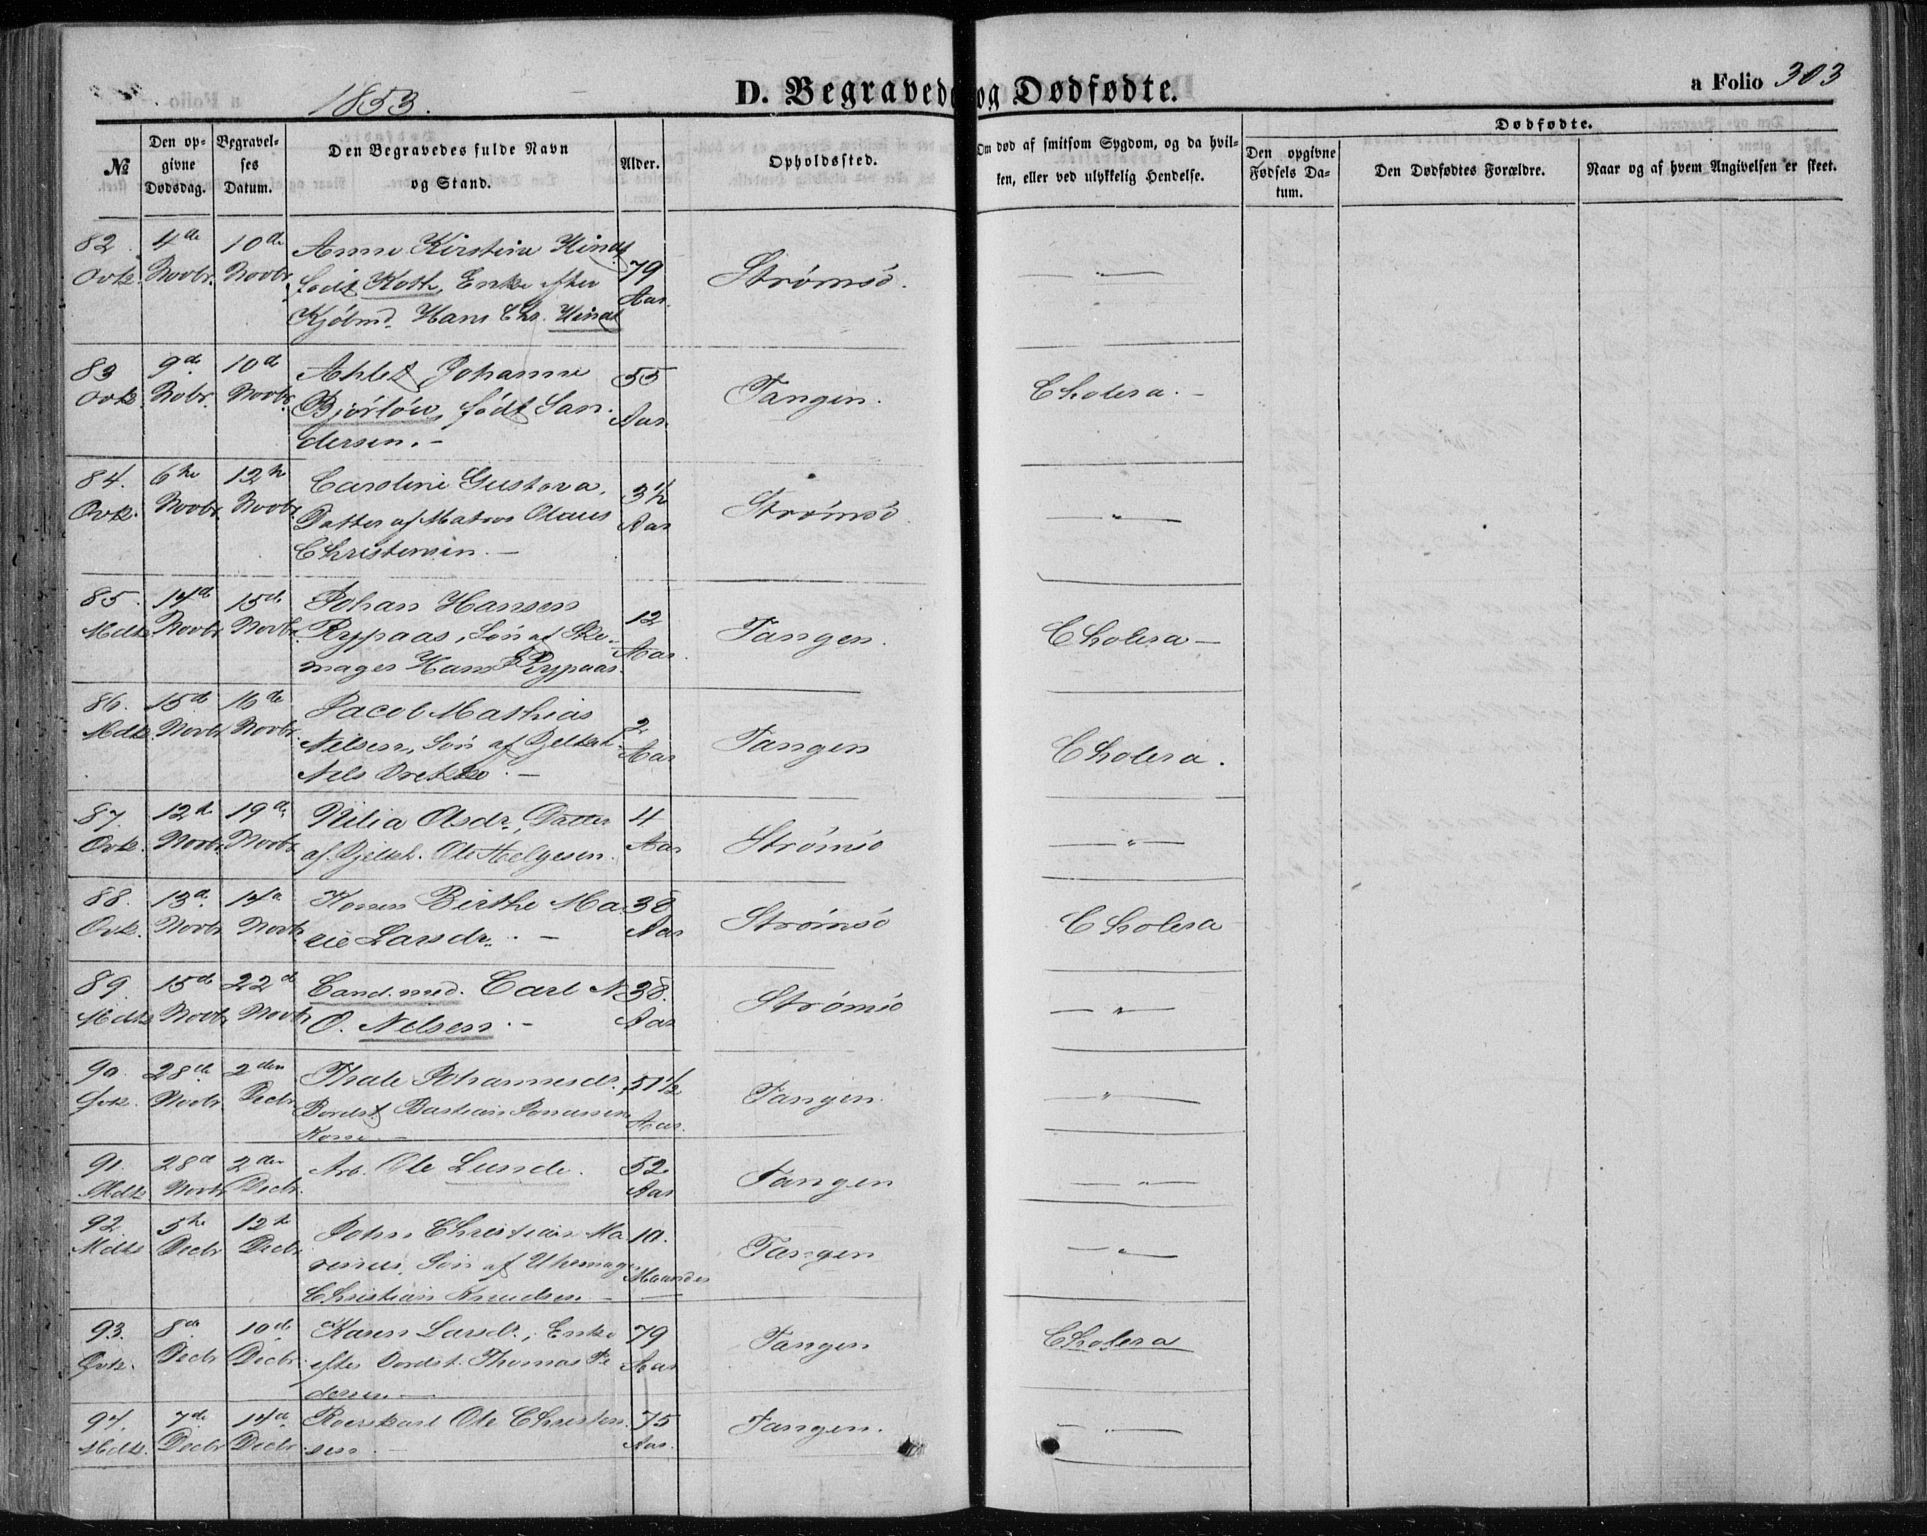 1853.
D. Begravede og Dødfødte.
a Folio 303
№
Den opgivne Dødsdag.
Begravelses Datum.
Den Begravedes fulde Navn og Stand.
Alder.
Opholdssted.
Om død af smitsom Sygdom, og da hvilken, eller ved ulykkelig Hendelse.
Dødfødte.
Den opgivne Fødsels Datum.
Den Dødfødtes Forældre.
Naar og af hvem Angivelsen er skeet.
82. 4de 10de Anne Kirstine
Novbr. Novbr. født Koth, Enke efter 79 Strømsö.
Kjöbmd. Hans Chr. Aar.
83 9de 10de Johanne 55 Tangen. Cholera.
Nobr. Novbr. født San- Aar.
dersen.
84. 6te 12te Caroline Gustava, 3½ Strømsö
Novbr. Novbr. Datter af Matros Olaus Aar
Christensen.
85. 14de 15de Johan Hansen 12 Tangen. Cholera
Mdk. Novbr. Novbr. Rypaas, Søn af Sko- Aar.
mager Hans Rypaas.
86. 15de 16de Jacob Mathias 2 Tangen Cholera.
Mdk. Novbr. Novbr. Nielsen, Søn af Aar
Nels
87. 12te 19de Nilia Olsdr., Datter 4 Strømsö
Novbr. Novbr. af Ole Helgesen. Aar
88. 13de 14de Konen Birthe Ma- 38 Strømsö Cholera
Novbr. Novbr. rie Larsdr. Aar
89. 15de 22de Cand. med. Carl N. 38. Strømsö
Mdk. Novbr. Novbr. O. Nelsen. Aar
90. 28de 2den Thale Johannesdr. 51½ Tangen
Novbr. Decbr. Bastian Aar.
Kone
91. 28de 2den Arb. Ole Lunde. 52 Tangen
Mdk. Novbr. Decbr. Aar
92. 5te 12te John Christian Ma- 10. Tangen
Mdk. Decbr. Decbr. rinus, Søn af Uhrmager Maaneder
Christian Knudsen
93. 8de 10de Karen Larsdr., Enke 79 Tangen Cholera
Decbr. Decbr. efter Thomas Pe- Aar
dersen
94. 7de 14de Ole Christen- 75 Tangen.
Mdk. Decbr. Decbr. sen Aar.